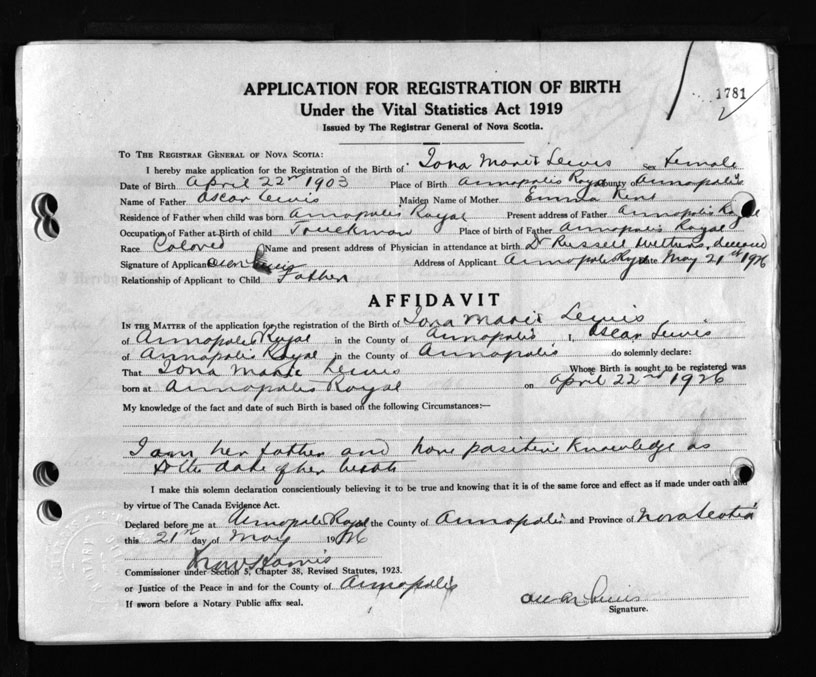 1781
APPLICATION FOR REGISTRATION OF BIRTH
Under the Vital Statistics Act 1919
Issued by The Registrar General of Nova Scotia.
TO THE REGISTRAR GENERAL OF NOVA SCOTIA:
I hereby make application for the Registration of the Birth of Iona Marie Lewis Sex Female
Date of Birth April 22nd 1903 Place of Birth Annapolis Royal County Annapolis
Name of Father Oscar Lewis Maiden Name of Mother Emma Kent
Residence of Father when child was born Annapolis Royal Present address of Father Annapolis Royal
Occupation of Father at Birth of child Truckman Place of birth of Father Annapolis Royal
Race Colored Name and present address of Physician in attendance at birth Dr Russell deceased
Signature of Applicant Oscar Lewis Address of Applicant Annapolis Royal Date May 21st 1926
Relationship of Applicant to Child Father
AFFIDAVIT
IN THE MATTER of the application for the registration of the Birth of Iona Marie Lewis
of Annapolis Royal in the County of Annapolis I, Oscar Lewis
of Annapolis Royal in the County of Annapolis do solemnly declare:
That Iona Marie Lewis Whose Birth is sought to be registered was
born at Annapolis Royal on April 22nd 1926
My knowledge of the fact and date of such Birth is based on the following Circumstances:—
I am her father and have positive knowledge as
to the date of her birth
I make this solemn declaration conscientiously believing it to be true and knowing that it is of the same force and effect as if made under oath and
by virtue of The Canada Evidence Act.
Declared before me at Annapolis Royal the County of Annapolis and Province of Nova Scotia
this 21st day of May 1926
Harris
Commissioner under Section 5, Chapter 38, Revised Statutes, 1923.
or Justice of the Peace in and for the County of Annapolis
If sworn before a Notary Public affix seal.
Oscar Lewis
Signature.